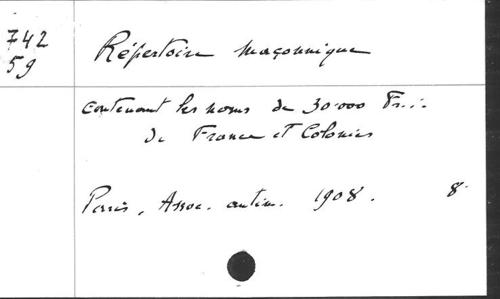 742
59
Répertoire maçonnique
contenant les noms de 30.000 Fr∴
de France et Colonies
Paris, Assoc. antim. 1908. 8°